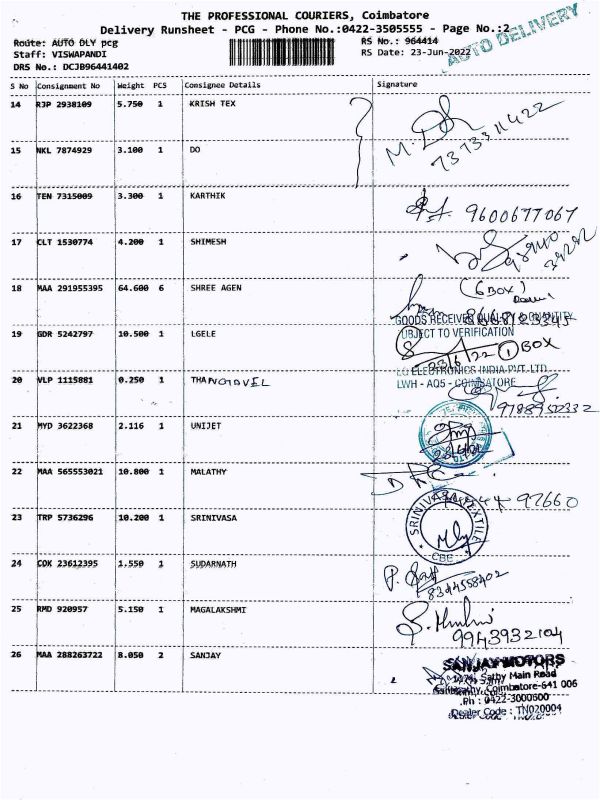 THE PROFESSIONAL COURIERS, Coimbatore
Delivery Runsheet - PCG - Phone No.:0422-3505555 - Page No.:2
AUTO DELIVERY
Route: AUTO DLY pcg RS No.: 964414
Staff: VISWAPANDI RS Date: 23-Jun-2022
DRS No.: DCJB96441402
S No Consignment No Weight PCS Consignee Details Signature
14 RJP 2938109 5.750 1 KRISH TEX
7373311422
15 NKL 7874929 3.100 1 DO
16 TEN 7315009 3.300 1 KARTHIK
9600677067
17 CLT 1530774 4.200 1 SHIMESH
18 MAA 291955395 64.600 6 SHREE AGEN
(6 BOX)
GOODS RECEIVED QUALITY & QUANTITY
19 GDR 5242797 10.500 1 LGELE
UBJECT TO VERIFICATION
23/6/22 1 BOX
LG ELECTRONICS INDIA PVT. LTD.
20 VLP 1115881 0.250 1 THANGAVEL
LWH - AQ5 - COIMBATORE
9788950332
21 MYD 3622368 2.116 1 UNIJET
22 MAA 565553021 10.800 1 MALATHY
97660
23 TRP 5736296 10.200 1 SRINIVASA
SRINIVASA TEXTILE
CBE
24 COK 23612395 1.550 1 SUDARNATH
8344558402
25 RMD 920957 5.150 1 MAGALAKSHMI
9943932104
26 MAA 288263722 8.050 2 SANJAY
SANJAY MOTORS
Sathy Main Road
Coimbatore-641 006
Ph : 0422-3000600
Dealer Code : TN020004